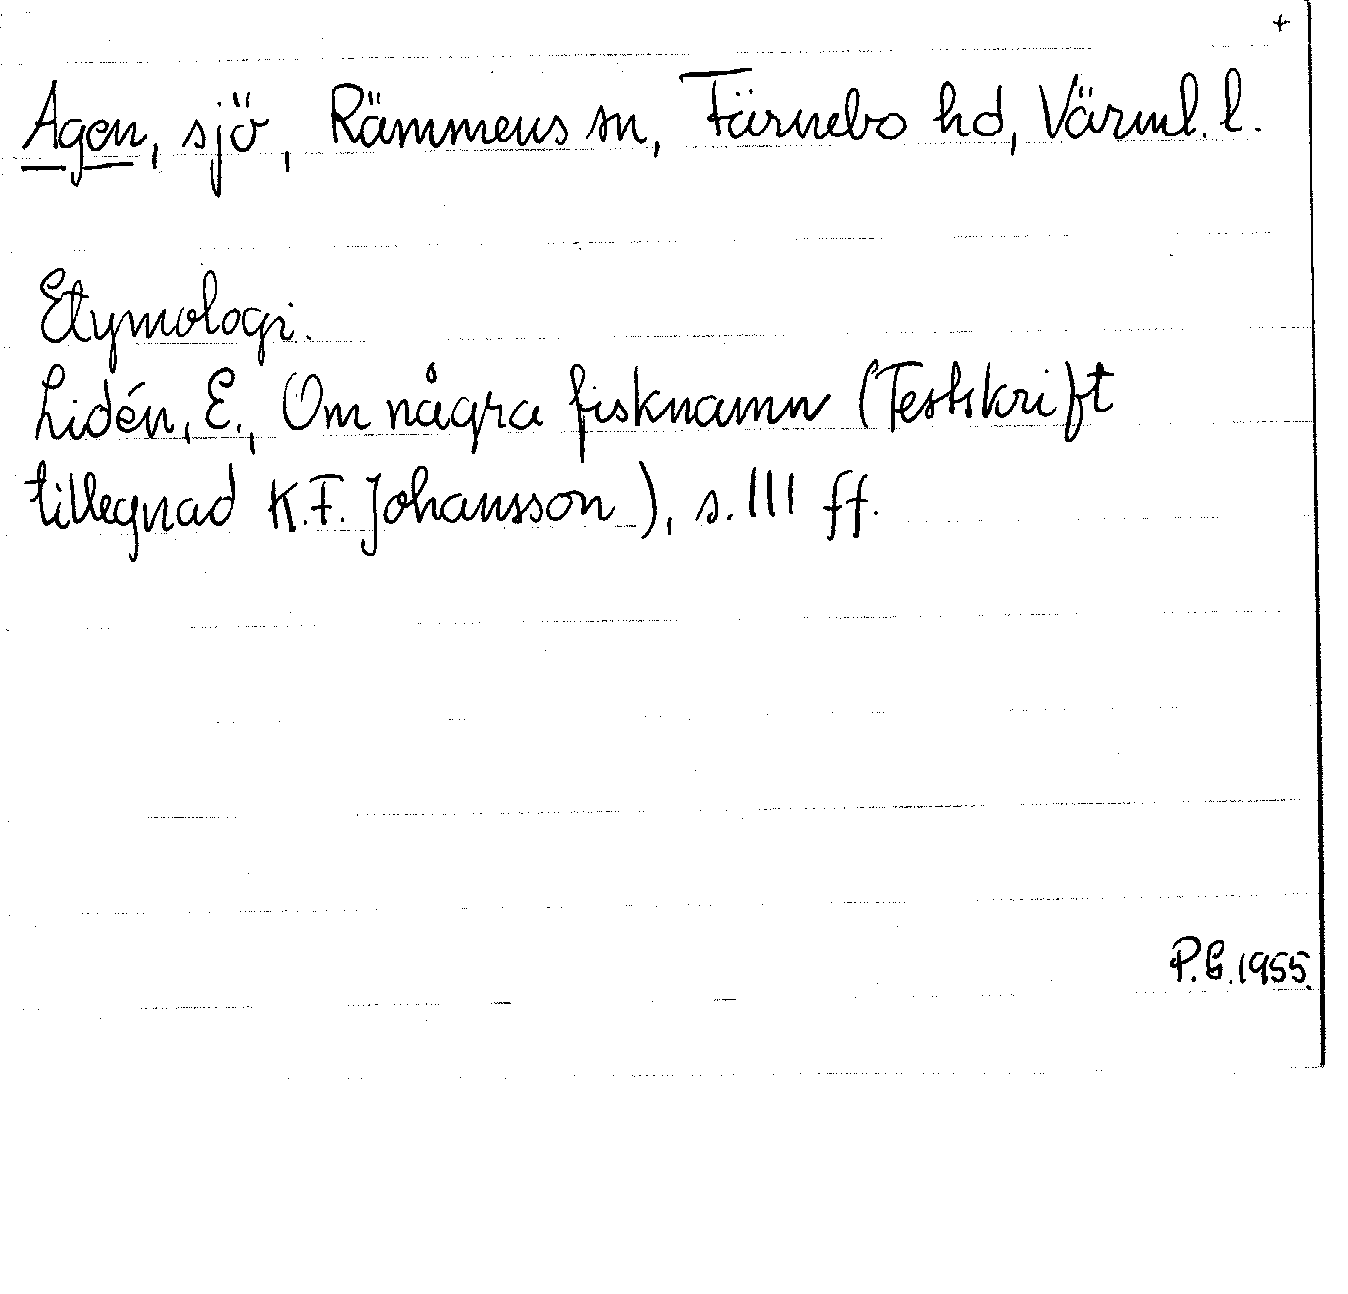 +
Agen, sjö, Rämmens sn, Färnebo hd, Värml. l.
Etymologi.
Lidén, E., Om några fisknamn (Festskrift
tillegnad K.F. Johansson), s. 111 ff.
P.G. 1955.